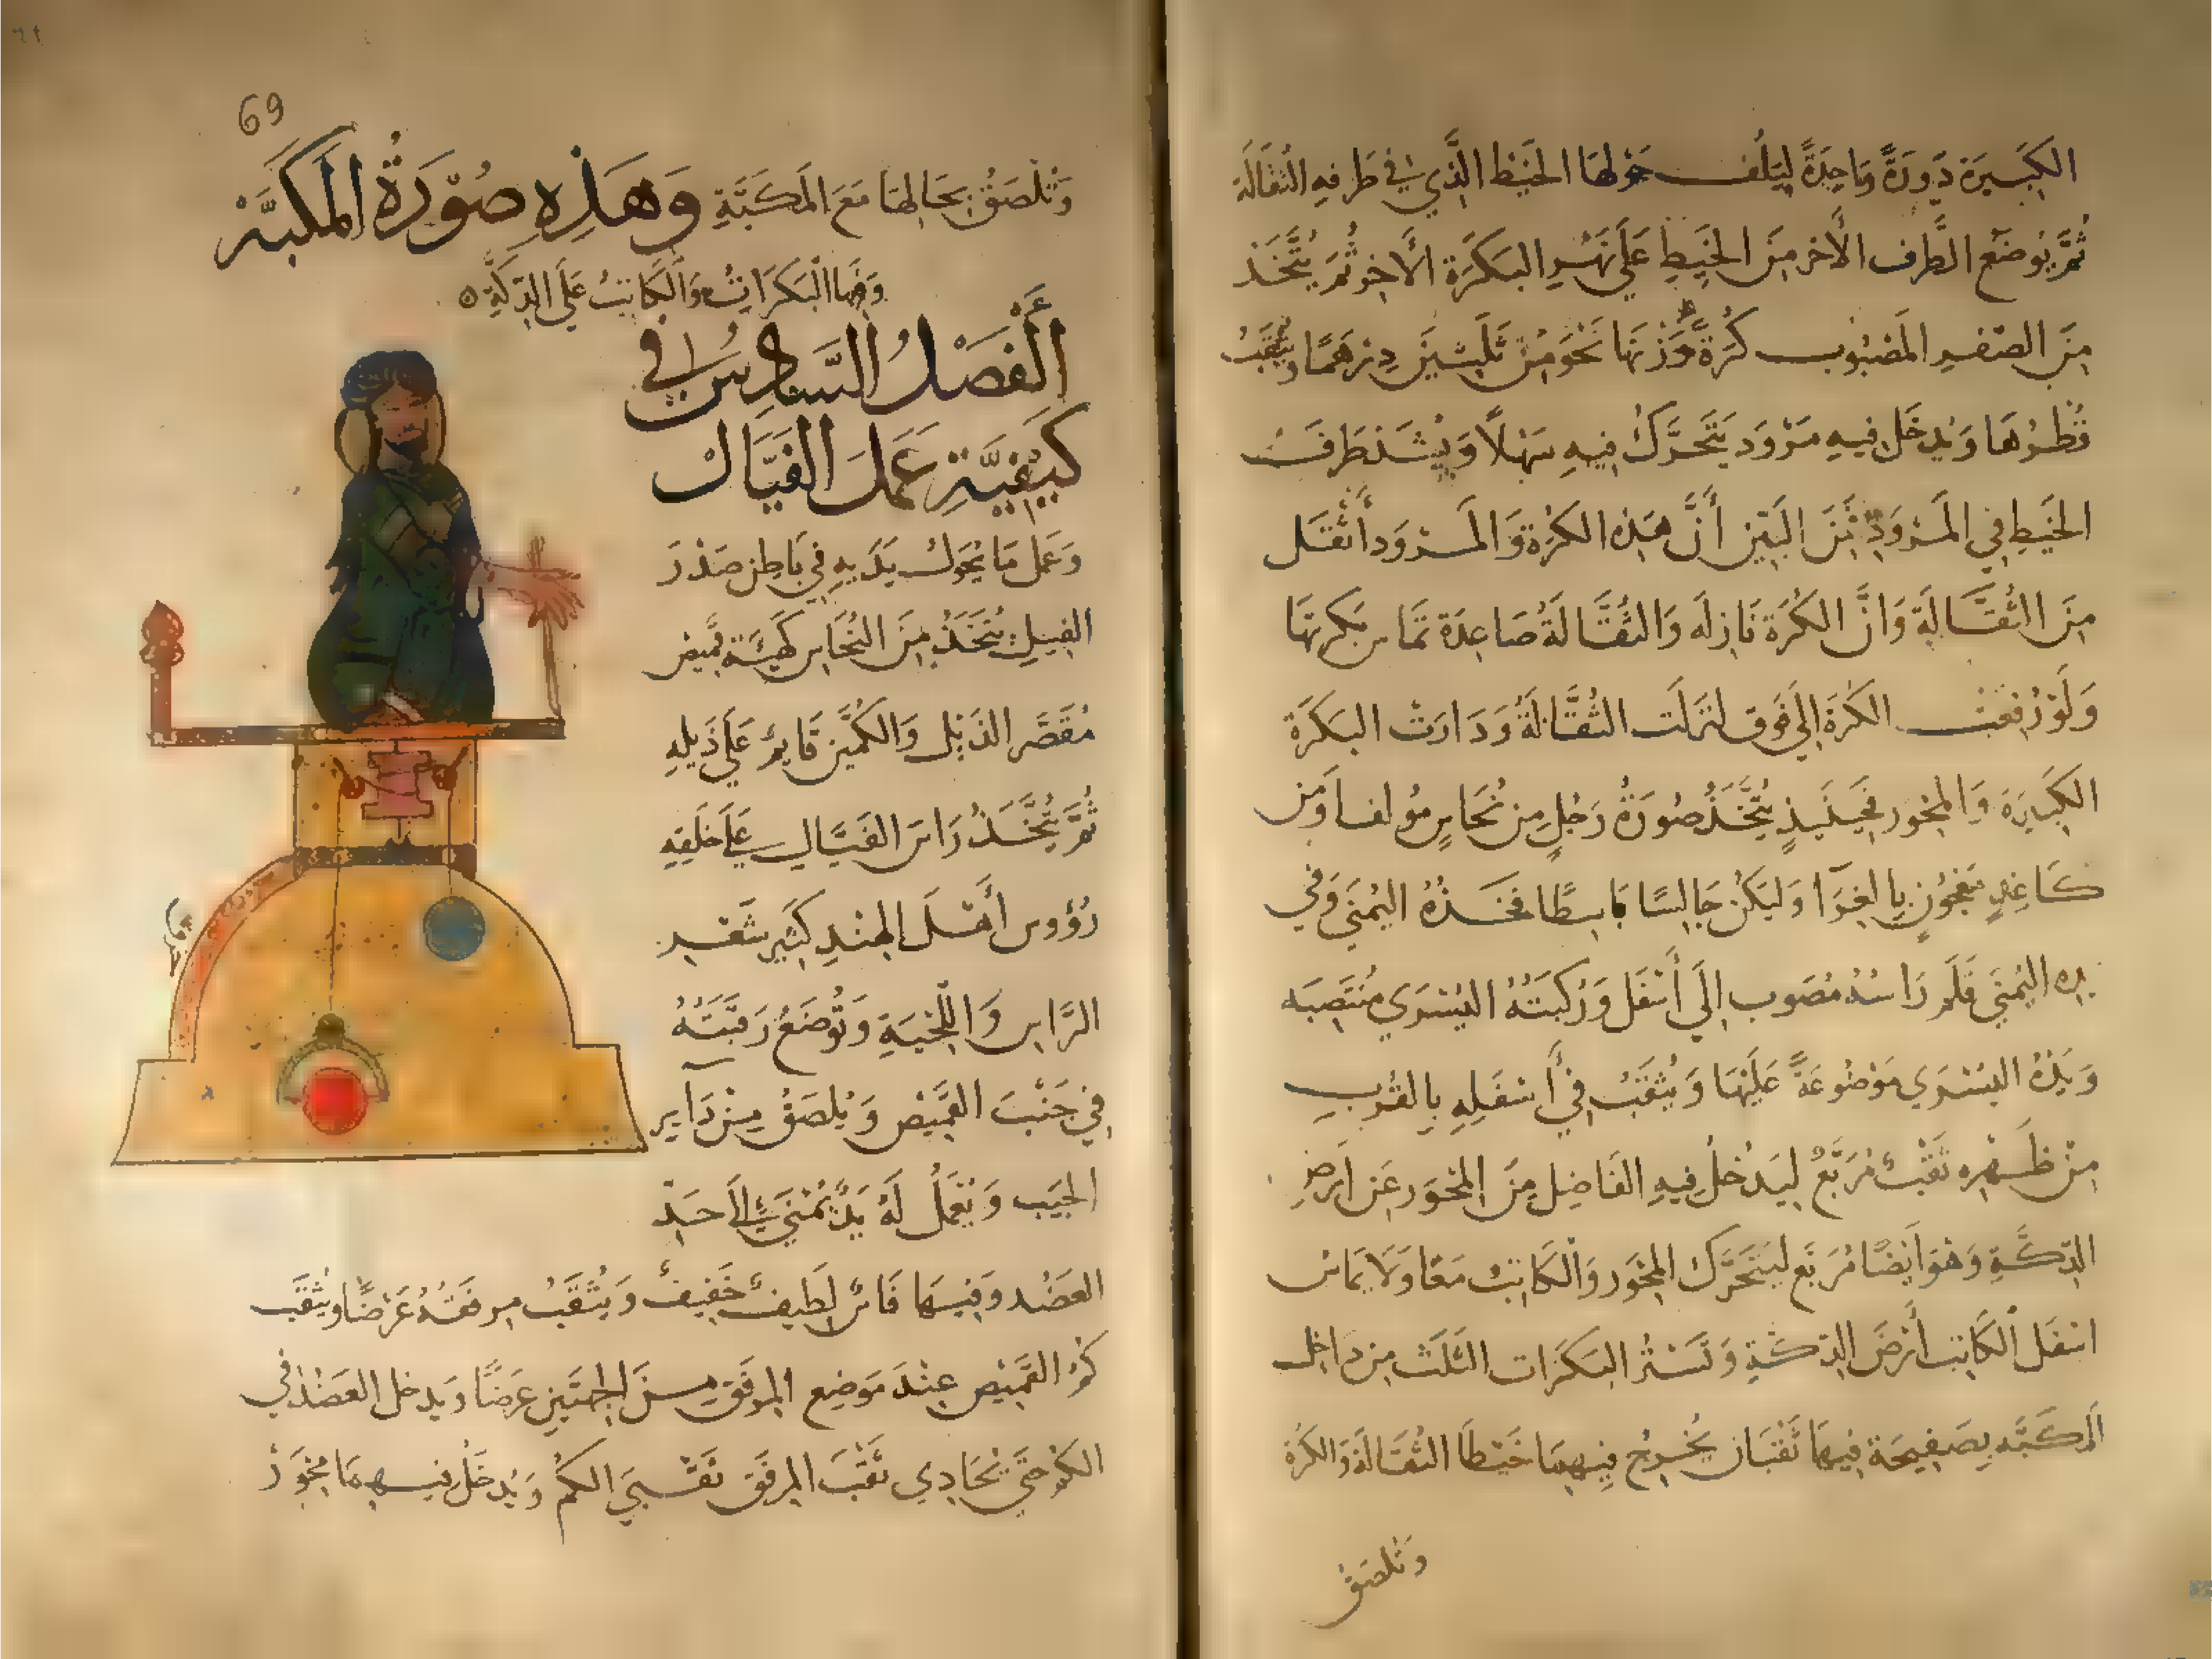 الكَبِيرَة دَوْرَةً وَاحِدَةً لِيَلُفَّ حَوْلهَا الخَيْط الَّذِي فِي طَرفِهِ الثُقَّالَة
ثُمَّ يُوضَع الطَّرف الأَخر مِنَ الخَيطِ عَلَى نَهْرِ البَكَرَة الأخر ثُمَّ يُتَّخَذ
مِنَ الصُفرِ المَصْبُوب كُرَة وَزْنهَا نَحْو مِنْ ثَلَثِينَ دِرْهَمًا وَيُثقَبُ
قُطْرهَا وَيُدخَل فِيهِ مَرْوَد يَتَحَرَّكُ فِيهِ سَهْلاً وَيُشَد طَرَفُ
الخَيطِ فِي المَرْوَد فَمِنَ البَيِّن أَنَّ هَذِه الكُرَة وَالمَرْوَد أَثْقَل
مِنَ الثُقَّالَة وَانَّ الكُرَة نَازِلَه وَالثُقَّالَةُ صَاعِدَة تَماس بَكرتهَا
وَلَوْ رُفِعَتْ الكُرَة إلَى فَوق لَنَزلَت الثُقَّالَةُ وَدَارَتْ البَكَرَة
الكَبِيرَة وَالمِحْور فَحِينَئِذٍ يُتَّخَذُ صُورَةُ رَجُلٍ مِن نُحَاسٍ مؤلفا وَمن
كَاغِدٍ مَعْجُونٍ بِالغِرَا وَليَكُنْ جَالِسًا بَاسِطًا فَخَذهُ اليُمْنَى وَفِي
يدِه اليُمْنَى قَلَم رَاسُهُ مُصَوب إلَى أَسْفَل وَرُكبَتهُ اليُسْرَى مُنتَصِبَه
وَيَدُهُ اليُسْرَى مَوْضُوعَةً عَلَيْهَا وَيُثقَبُ فِي أَسْفَلِهِ بِالقُربِ
مِنْ ظَهرِه ثَقْبٌ مُرَبَّعٌ لِيَدخُل فِيهِ الفَاضِل مِنَ المِحْوَر عَن اَرضِ
الدِّكَّةِ وَهُوَ أَيْضًا مُرَبَّع لِيَتَحَرَّك المِحْوَر وَالكَاتِبُ مَعًا وَلَا يمَاسّ
اسفَل الكَاتِب أَرْضَ الدِّكَّةِ وَتَسْتُر البَكَرَات الثَّلَث مِن دَاخِل
المكَبَّه بِصَفِيحَة فِيهَا ثَقْبَان يَخْرُج فِيهِمَا خَيْطَا الثُقَّالَة وَالكُرَة
وَتُلصَقُ
69
وَتُلْصَقُ بِحَالهَا مَعَ المكَبَّةِ وَهَذِهِ صُوْرَةُ المَكَبَّةْ
وَفيهَا البَكَرَاتُ وَالكَاتِبُ عَلَى الدِّكَّةِ
أَلْفَصْلُ السَّادِسُ فِي
كَيْفِيَّةِ عَمَلَ الفَيَّالْ
وَعَمَل مَا يُحَرِّكُ يَدَيهِ فِي بَاطِن صَدْرَ
الفِيلِ يُتَّخَذُ مِنَ النُحَاسِ كَهَيْئَة قَمِيص
مُقَصَّر الذَيْل وَالكُمَّين قَايِم عَلَى ذَيلِهِ
ثُمَّ يُتَّخَذُ رَاسُ الفَيَّالِ عَلَى خلقِهِ
رُؤوس أَهْلَ الهِندِ كَثِير شَعْرِ
الرَّاسِ وَاللِّحْيَةِ وَتُوضَعُ رَقَبَتهُ
فِي جَيْبَ القَمِيْص وَيُلصَقُ مِنْ دَايِر
الجَيب وَيُعْمَلُ لَهُ يَدٌ يُمْنَى إِلَى حَدّ
العَضُد وَفِيهَا فَاسٌ لَطِيفٌ خَفِيفٌ وَيُثقَبُ مِرفَقَهُ عَرْضًا وَيُثقَب
كُمّ القَمِيْصِ عِنْدَ مَوضِعِ المِرفَقِ مِنَ الجِهَتَينِ عَرْضًا وَيدخل العَضُدُ فِي
الكُمّ حَتَّى يُحَاذِي ثَقْبَ المِرفَق ثَقْبَيَ الكُمِّ وَيُدخَلُ فِيهِمَا مِحْوَرْ